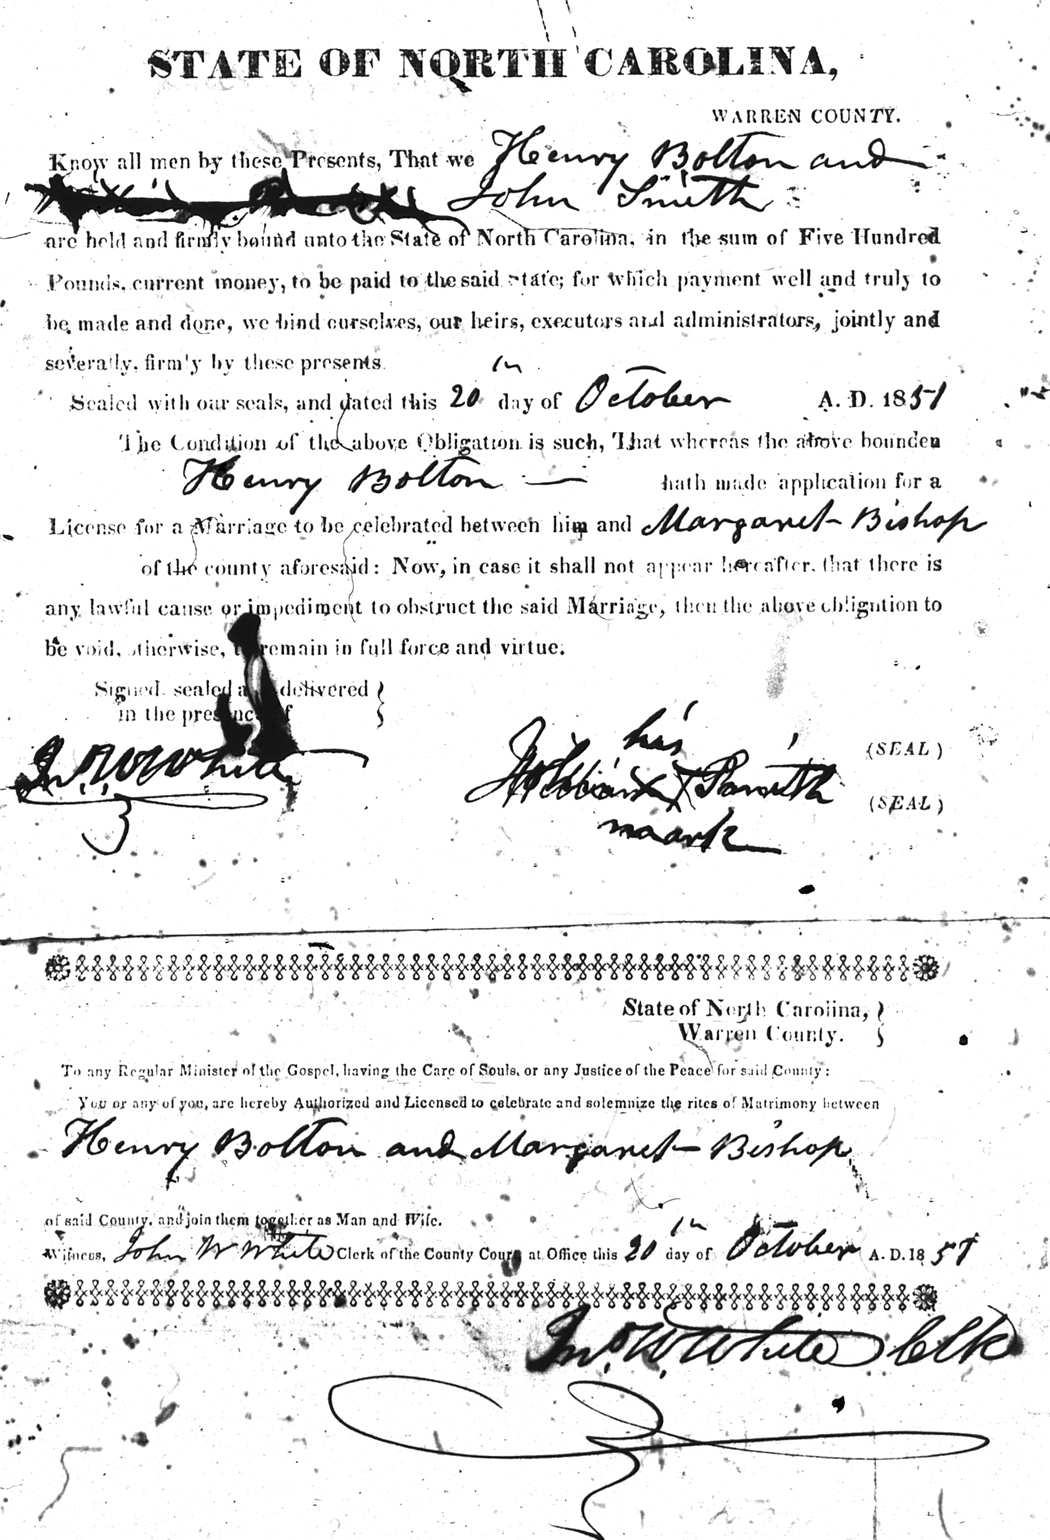 STATE OF NORTH CAROLINA,
WARREN COUNTY.
Know all men by these Presents, That we Henry Bolton and
John Smith
are held and firmly bound unto the State of North Carolina, in the sum of Five Hundred
Pounds, current money, to be paid to the said State; for which payment well and truly to
be made and done, we bind ourselves, our heirs, executors and administrators, jointly and
severally, firmly by these presents.
Sealed with our seals, and dated this 20th day of October A. D. 1851
The Condition of the above Obligation is such, That whereas the above bounden
Henry Bolton — hath made application for a
License for a Marriage to be celebrated between him and Margaret Bishop
of the county aforesaid: Now, in case it shall not appear hereafter, that there is
any lawful cause or impediment to obstruct the said Marriage, then the above obligation to
be void, otherwise, to remain in full force and virtue.
Signed, sealed and delivered
in the presence of
his
(SEAL)
Jno. W. White
X Smith
(SEAL)
maark
State of North Carolina,
Warren County.
To any Regular Minister of the Gospel, having the Care of Souls, or any Justice of the Peace for said County:
You or any of you, are hereby Authorized and Licensed to celebrate and solemnize the rites of Matrimony between
Henry Bolton and Margaret Bishop
of said County, and join them together as Man and Wife.
Witness, John W White Clerk of the County Court at Office this 20th day of October A. D. 1851
Jno. W. White Clk